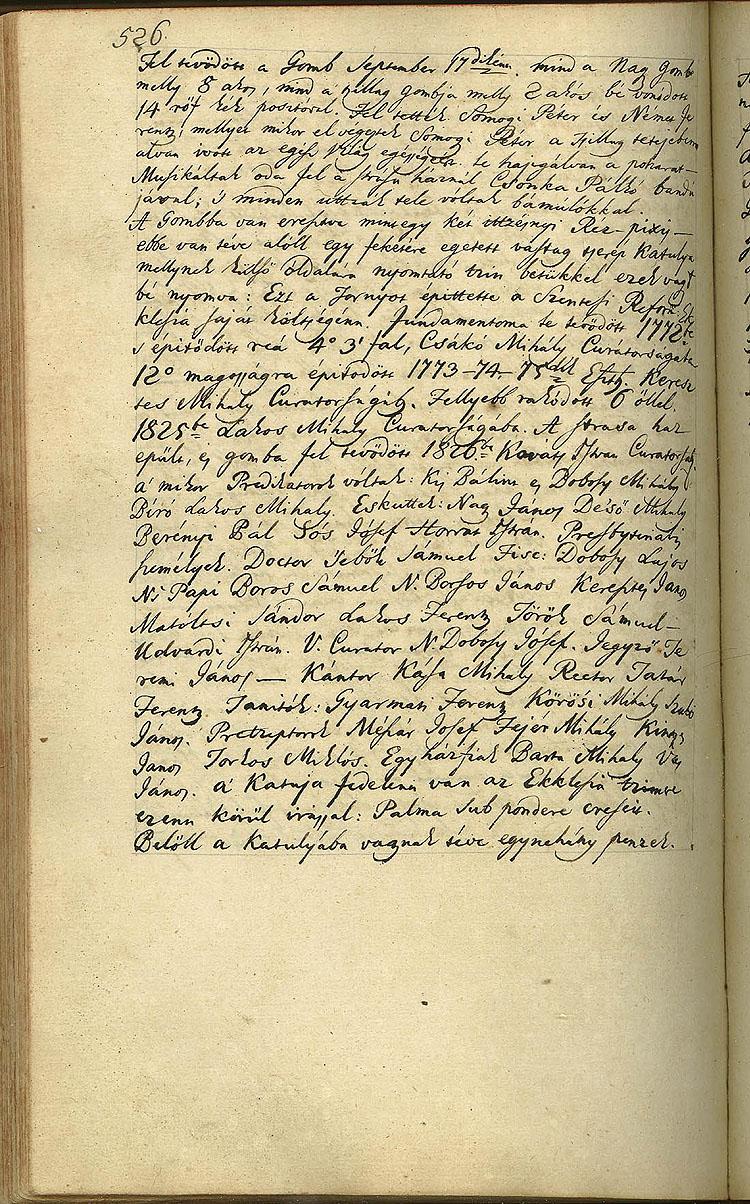 526.
Fel tevödött a Gomb September 17dikénn. mind a Nag Gomb
melly 8 akos, mind a tsillag gombja melly 2 akós bé vonódott
14 röf kék posztóval. Fel tették Somogi Péter és Német Fe
rentz; mellyet mikor el végeztek Somogi Péter a Tsillag tetejebenn
alván ivott az egész Világ egésségéért le hajugálván a poharat —
Musikáltak oda fel a strása háznál Csonka Palkó bandá
javal; 's minden uttzák tele voltak bámúlókkal.
A Gombba van eresztve mintegy két ittzéjnyi Réz-pixis —
ebbe van téve alóll egy feketére egetett vastag tserép Katulya
mellynek külső óldalára nyomtató trin betükkel ezek vagt
bé nyomva: Ezt a Tornyot épittette a Szentesi Reform. Ek
klésia saját költségénn. Fundamentoma le tevödött 1772be
's épitödött reá 4° 3' fal, Csákó Mihály Curátorságába
12° magosságra épitödött 1773-74-75dik Eszt. Keresz
tes Mihaly Curatorságáb. Fellyebb rakódott 6 öllel.
1825be Lakos Mihaly Curatorságába. A strasa ház
epült, es gomba fel tevödött 1826be Kováts Istvan Curatorság.
a' mikor Predikátorok vóltak: Kis Bálint es Dobosy Mihály
Bíró Lakos Mihaly. Eskuttek: Nag János Désó Mihaly
Berényi Pál Sós Jósef Horvat István. Presbyteriális
személyek. Doctor Sebök Samuel Fisc: Dobosy Lajos
Ns Papi Boros Sámuel N. Borsos János Keresztes Janos
Matóltsi Sándor Lakos Ferentz Török Sámuel —
Udvardi Istrán. V. Curator N. Dobosy Jósef. Jegyző Te
remi János — Kántor Kása Mihaly Rector Tatár
Ferentz. Tanitók: Gyarmati Ferentz Körösi Mihály Szabó
Janos. Pretzeptorok Mészár Josef Fejér Mihály Kintses
Janos Torkos Miklós. Egyházfiak Barta Mihaly Vas
János. a' Katuja fedelenn van az Ekklésia tzimere
ezenn körül irással: Palma sub pondere crescit.
Belöll a Katulyába vagnak téve egynehány penzek.